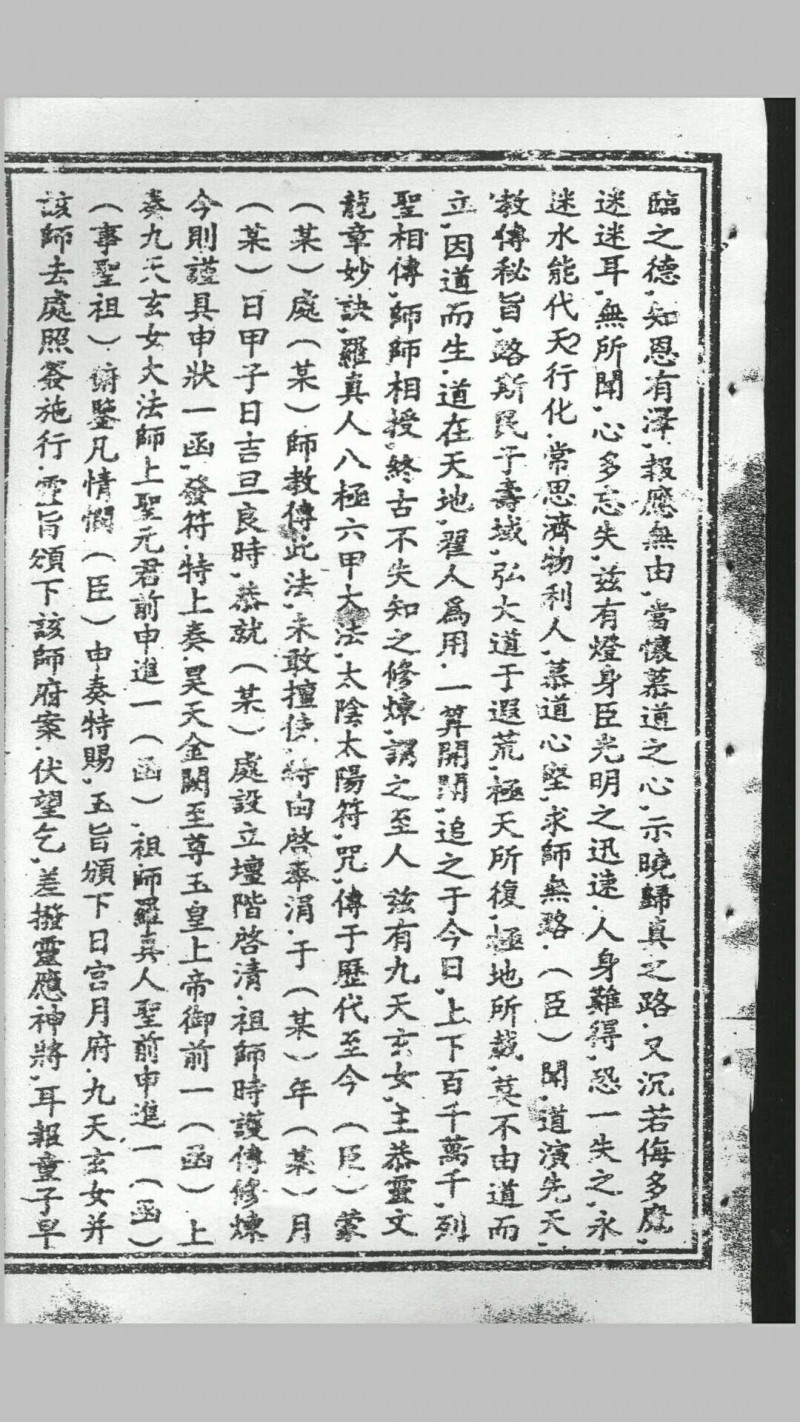 臨之德，知恩有澤，報應無由，當懷慕道之心，示曉歸真之路．又沉若侮多魔，
迷迷耳，無所聞，心多忘失，茲有燈身臣光明之迅速．人身難得，恐一失之，永
迷水能代天行化．常思濟物利人，慕道心堅，求師無路．（臣）聞，道演先天，
教傳秘旨，路斯民于壽域，弘大道于遐荒，極天所復，極地所載，莫不由道而
立，因道而生，道在天地，雇人爲用．一算開閉，追之于今日，上下百千萬千，列
聖相傳，師師相授，終古不失知之修煉，謂之至人，茲有九天玄女，主恭靈文
龍章妙訣，羅真人八極六甲大法，太陰太陽符，咒，傳于歷代至今（臣）蒙
（某）處（某）師教傳此法，未敢擅使，特向啓奉涓，于（某）年（某）月
（某）日甲子日，吉旦良時，恭就（某）處設立壇階啓清，祖師時護傳修煉
今則謹具申狀一函，發符，特上奏，昊天金闕至尊玉皇上帝御前一（函）上
奏九天玄女大法師上聖元君前申進一（函）祖師羅真人聖前申進一（函）
（事聖祖）俯鑒凡情憫（臣）申奏特賜，玉旨頒下日宮月府，九天玄女并
該師去處照簽施行．靈旨頒下該師府案．伏望乞，差撥靈應神將，耳報童子早